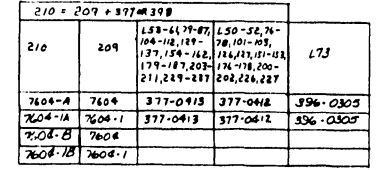 210 = 209 + 377 OR 398
210
209
L53-61,79-87,
104-112,129-
137,154-162,
179-187,203-
211,229-237
L50-52,76-
78,101-103,
126,127,151-153,
176-178,200-
202,226,227
L73
7604-A 7604 377-0413 377-0412 396-0305
7604-1A 7604-1 377-0413 377-0412 396-0305
7604-B 7604
7604-1B 7604-1